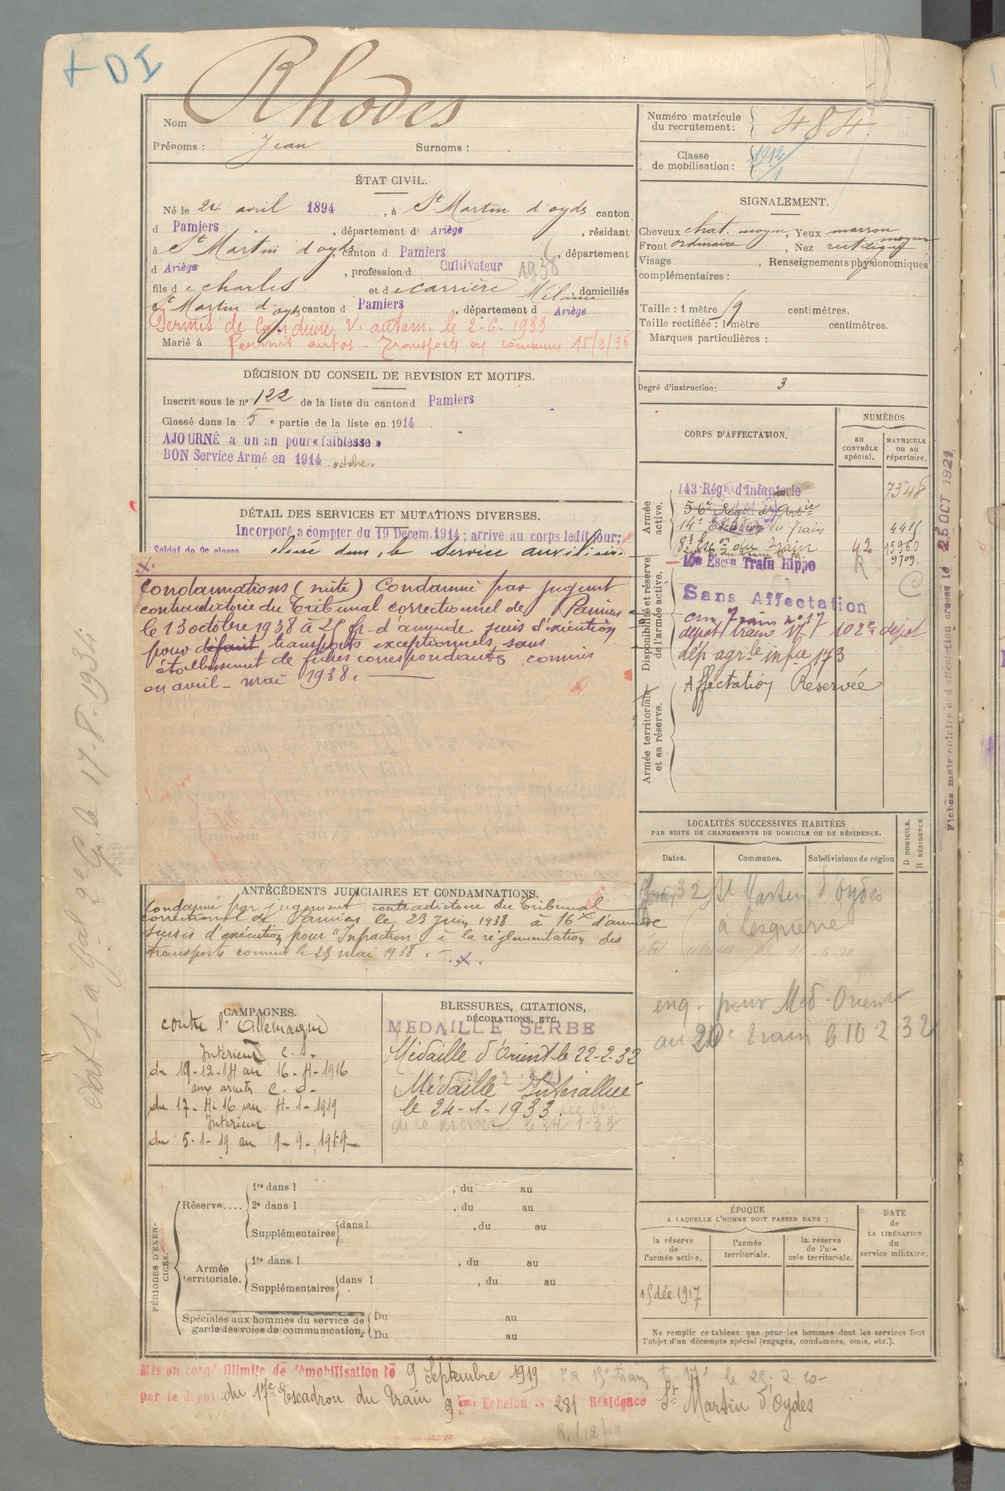 + DI
Nom Rhodes
Prénoms : Jean Surnoms :
Numéro matricule du recrutement : 484
Classe de mobilisation : 1912
ÉTAT CIVIL.
Né le 24 avril 1894, à St Martin d'oyds canton
d Pamiers, département d Ariège, résidant
à St Martin d'oyds, canton d Pamiers, département
d Ariège, profession d Cultivateur 1938
fils de charles et de carrière Mélanie domiciliés
à St Martin d'oyds canton d Pamiers, département d Ariège
Permis de Conduire V. autom. le 2-6-1933
Marié à
Permis autos - Transports en commun 15/2/36
SIGNALEMENT.
Cheveux chat. moyen, Yeux marron moyen
Front ordinaire, Nez rectiligne
Visage , Renseignements physionomiques
complémentaires :
Taille : 1 mètre 59 centimètres.
Taille rectifiée : 1 mètre centimètres.
Marques particulières :
Degré d'instruction : 3
DÉCISION DU CONSEIL DE REVISION ET MOTIFS.
Inscrit sous le n° 122 de la liste du canton d Pamiers
Classé dans la 5e partie de la liste en 1914
AJOURNÉ à un an pour « faiblesse »
BON Service Armé en 1914 octobre.
DÉTAIL DES SERVICES ET MUTATIONS DIVERSES.
Incorporé à compter du 19 Décem. 1914 ; arrivé au corps ledit jour ;
Soldat de 2e classe
classé dans le service auxiliaire
Condamnations (suite) Condamné par jugement
contradictoire du Tribunal correctionnel de Pamiers
le 13 octobre 1938 à 25 fr. d'amende sursis d'exécution
pour défaut transports exceptionnels, sans
établissement de fiches correspondants, commis
en avril - mai 1938.
CORPS D'AFFECTATION.
NUMÉROS
au CONTRÔLE spécial.
MATRICULE ou au répertoire.
Armée active.
143 Rég. d'Infanterie 7348
14e Escadron du train 4415
42 15960
R 9709.
Escon Train Hippo
Disponibilité et réserve de l'armée active.
Sans Affectation
dépôt train 17 102e dépôt
dép agr.le inf.ie 173
Armée territoriale et sa réserve.
Affectation Réservée
LOCALITÉS SUCCESSIVES HABITÉES
PAR SUITE DE CHANGEMENTS DE DOMICILE OU DE RÉSIDENCE.
Dates. Communes. Subdivisions de région
D DOMICILE. R RÉSIDENCE
32 St Martin d'Oydes
à Lesquerre
eng. pour Med-Orient
au 20e train le 10 2 32
ANTÉCÉDENTS JUDICIAIRES ET CONDAMNATIONS.
Condamné par jugement contradictoire du Tribunal
correctionnel de Pamiers le 23 juin 1938 à 16 d'amende
sursis d'exécution pour "Infraction à la réglementation des
transports commis le 23 mai 1938.
CAMPAGNES.
contre l'Allemagne
Intérieur C. S.
du 19-12-14 au 16-4-1916
aux armées C. D.
du 17-4-16 au 4-1-1919
Intérieur
du 5-1-19 au 9-9-1919
BLESSURES, CITATIONS,
DÉCORATIONS, ETC.
MEDAILLE SERBE
Médaille d'Orient le 22-2-32
Médaille Interalliée
le 24-1-1933
de la victoire le 24.1.33
PÉRIODES D'EXERCICES.
Réserve....
1re dans l , du au
2e dans l , du au
Supplémentaires dans l , du au
Armée territoriale.
1re dans l , du au
Supplémentaires dans l , du au
Spéciales aux hommes du service de garde des voies de communication.
Du au
Du au
ÉPOQUE
A LAQUELLE L'HOMME DOIT PASSER DANS :
la réserve de l'armée active.
l'armée territoriale.
la réserve de l'armée territoriale.
DATE de LA LIBÉRATION du service militaire.
15 déc 1917
Ne remplir ce tableau que pour les hommes dont les services font
l'objet d'un décompte spécial (engagés, condamnés, omis, etc.).
Mis en congé illimité de démobilisation le 9 Septembre 1919.
par le dépôt du 17e Escadron du Train 9 ème Echelon N° 281 Résidence St Martin d'Oydes
17-8-1934
Fiches matriculaire et d'affectation créées le 25 OCT 1921